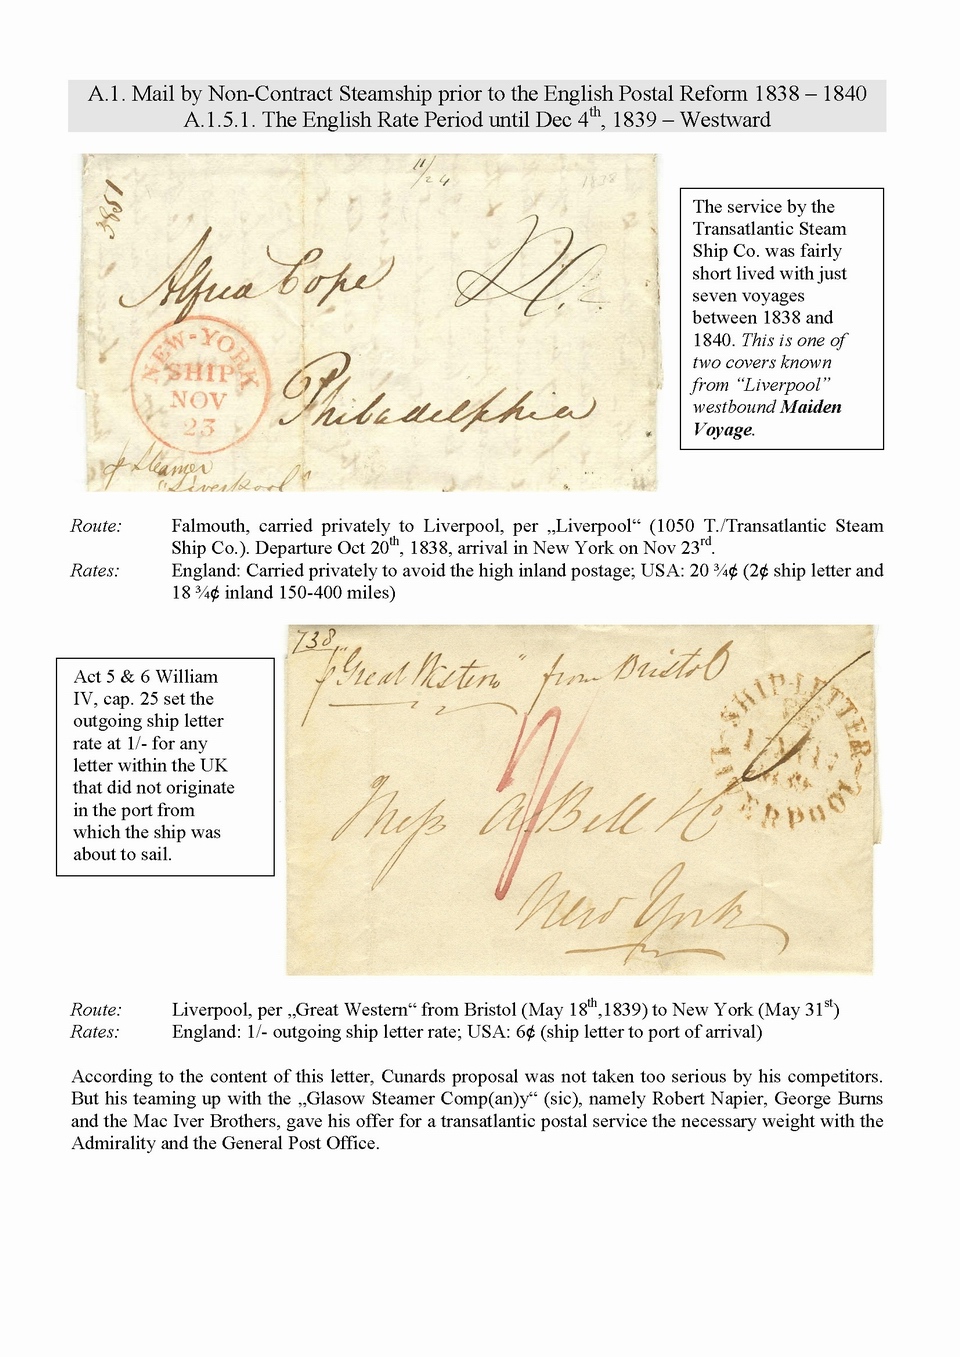 A.1. Mail by Non-Contract Steamship prior to the English Postal Reform 1838 – 1840
A.1.5.1. The English Rate Period until Dec 4th, 1839 – Westward
11/24
1838
3851
Alfred Cope
NEW-YORK
SHIP
NOV
23
Philadelphia
p Steamer
"Liverpool"
The service by the
Transatlantic Steam
Ship Co. was fairly
short lived with just
seven voyages
between 1838 and
1840. This is one of
two covers known
from “Liverpool”
westbound Maiden
Voyage.
Route: Falmouth, carried privately to Liverpool, per „Liverpool“ (1050 T./Transatlantic Steam
Ship Co.). Departure Oct 20th, 1838, arrival in New York on Nov 23rd.
Rates: England: Carried privately to avoid the high inland postage; USA: 20 ¾¢ (2¢ ship letter and
18 ¾¢ inland 150-400 miles)
Act 5 & 6 William
IV, cap. 25 set the
outgoing ship letter
rate at 1/- for any
letter within the UK
that did not originate
in the port from
which the ship was
about to sail.
738
p "Great Western" from Bristol
SHIP-LETTER
LIVERPOOL
Mess A. Bell & Co
New York
Route: Liverpool, per „Great Western“ from Bristol (May 18th,1839) to New York (May 31st)
Rates: England: 1/- outgoing ship letter rate; USA: 6¢ (ship letter to port of arrival)
According to the content of this letter, Cunards proposal was not taken too serious by his competitors.
But his teaming up with the „Glasow Steamer Comp(an)y“ (sic), namely Robert Napier, George Burns
and the Mac Iver Brothers, gave his offer for a transatlantic postal service the necessary weight with the
Admirality and the General Post Office.